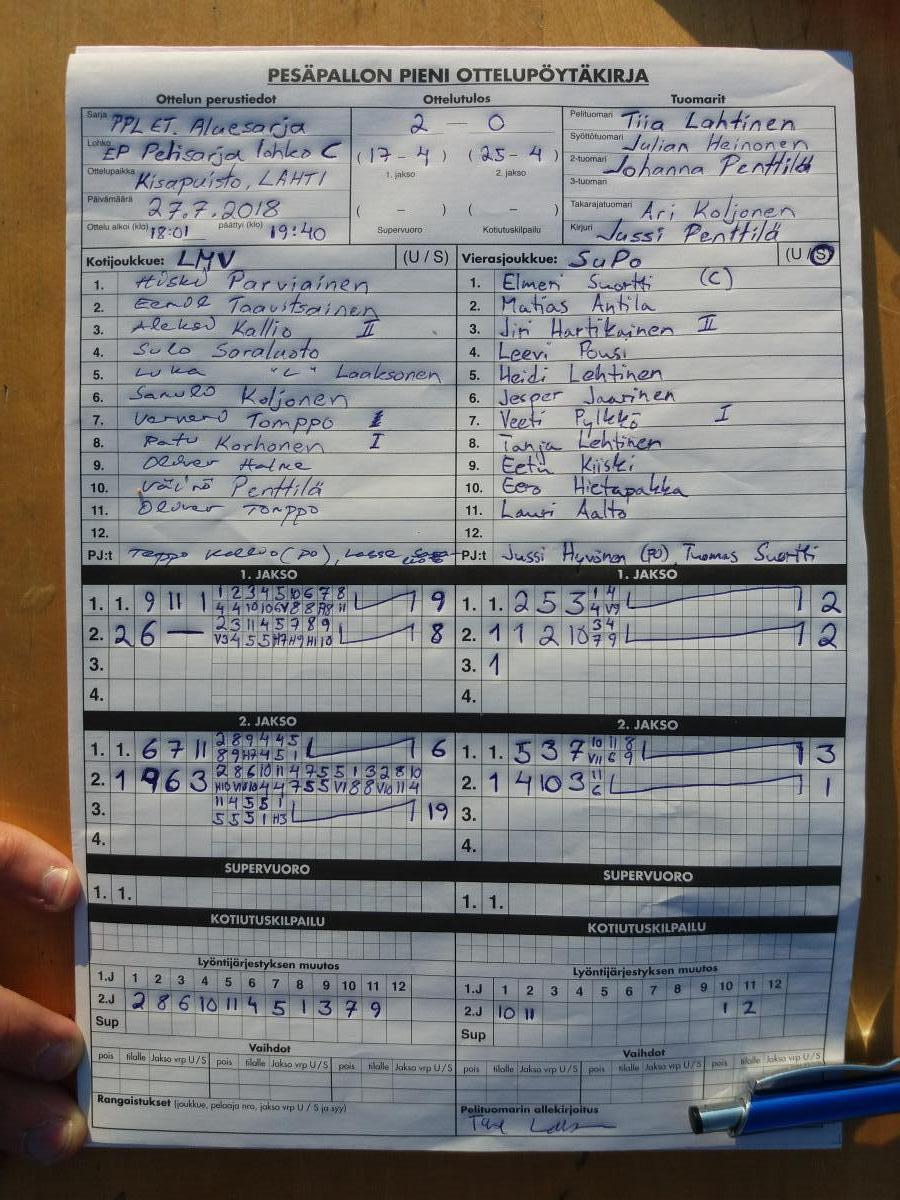 PESÄPALLON PIENI OTTELUPÖYTÄKIRJA
Ottelun perustiedot Ottelutulos Tuomarit
Sarja PPL ET. Aluesarja
Lohko EP Pelisarja lohko C
Ottelupaikka Kisapuisto, LAHTI
Päivämäärä 27.7.2018
Ottelu alkoi (klo) 18:01 päättyi (klo) 19:40
2 – 0
(17 - 4) (25 - 4)
1. jakso 2. jakso
( - ) ( - )
Supervuoro Kotiutuskilpailu
Pelituomari Tiia Lahtinen
Syöttötuomari Julian Heinonen
2-tuomari Johanna Penttilä
3-tuomari
Takarajatuomari Ari Koljonen
Kirjuri Jussi Penttilä
Kotijoukkue: LMV (U / S)
1. Parviainen
2. Eemil Taavitsainen
3. Aleksi Kallio II
4. Sulo Saraluoto
5. Luka "L" Laaksonen
6. Samuli Koljonen
7. Verneri Tomppo
8. Patu Korhonen I
9. Oliver Halme
10. Väinö Penttilä
11. Oliver Tomppo
12.
PJ:t Teppo Kallio (PJ), Lasse
Vierasjoukkue: SuPo (U / S)
1. Elmeri Suortti (C)
2. Matias Antila
3. Jiri Hartikainen II
4. Leevi Pousi
5. Heidi Lehtinen
6. Jesper Jaarinen
7. Veeti Pylkkö I
8. Tanja Lehtinen
9. Eetu Kiiski
10. Eero Hietapakka
11. Lauri Aalto
12.
PJ:t Jussi Hyvönen (PJ), Tuomas Suortti
1. JAKSO
1. 1. 9 11 1 9
2. 2 6 — 8
3.
4.
1. JAKSO
1. 1. 2 5 3 2
2. 1 1 2 10 2
3. 1
4.
2. JAKSO
1. 1. 6 7 11 6
2. 1 9 6 3
3. 19
4.
2. JAKSO
1. 1. 5 3 7 3
2. 1 4 10 3 1
3.
4.
SUPERVUORO
1. 1.
SUPERVUORO
1. 1.
KOTIUTUSKILPAILU
KOTIUTUSKILPAILU
Lyöntijärjestyksen muutos
1.J 1 2 3 4 5 6 7 8 9 10 11 12
2.J 2 8 6 10 11 4 5 1 3 7 9
Sup
Lyöntijärjestyksen muutos
1.J 1 2 3 4 5 6 7 8 9 10 11 12
2.J 10 11 1 2
Sup
Vaihdot
pois tilalle Jakso vrp U / S pois tilalle Jakso vrp U / S pois tilalle Jakso vrp U / S
Vaihdot
pois tilalle Jakso vrp U / S pois tilalle Jakso vrp U / S pois tilalle Jakso vrp U / S
Rangaistukset (joukkue, pelaaja nro, jakso vrp U / S ja syy)
Pelituomarin allekirjoitus